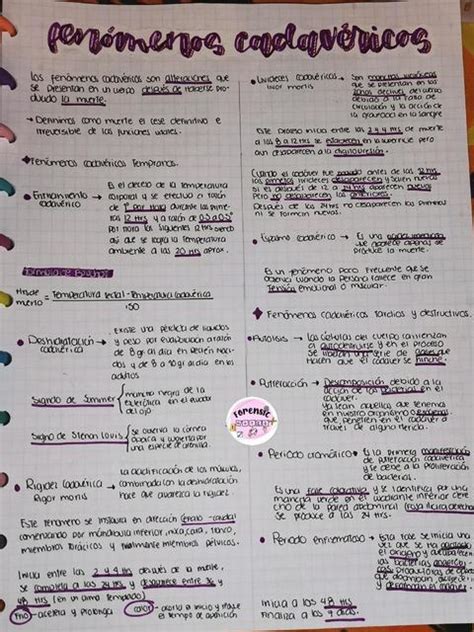 Fenómenos cadavéricos
Los fenómenos cadavéricos son alteraciones que
se presentan en un cuerpo después de haberse pro-
ducido la muerte.
→ Definimos como muerte el cese definitivo e
irreversible de las funciones vitales.
Fenómenos cadavéricos tempranos.
Enfriamiento cadavérico →
Es el deceso de la temperatura
corporal y se efectua a razón
de 1° por hora durante las prime-
ras 12 hrs y a razón de 0.5 a 05°
por hora las siguientes 12 hrs
así que se logra la temperatura
ambiente a las 20 hrs aprox.
Formula de Bouchut
Hrs de muerto = Temperatura rectal - Temperatura cadavérica
.50
Deshidratación cadavérica →
Existe una pérdida de líquidos
y peso por evaporación a razón
de 8 gr al día en Recién naci-
dos y de 8 a 10 gr al día en los
adultos
Signo de Sommer
mancha negra de la
esclerótica en el ecuador
del ojo
Signo de Stenon Louis
Se observa la córnea
opaca y arrugada por
una especie de telilla.
Rigidez cadavérica →
Rigor mortis
La acidificación de los músculos,
combinada con la deshidratación
hace que aparezca la rigidez.
Este fenómeno se instaura en dirección cefalo-caudal
comenzando por mandibula inferior, nuca, cara, tronco,
miembros torácicos y finalmente miembros pélvicos.
Inicia entre las 2 y 4 hrs después de la muerte,
se completa a las 24 hrs y desaparece entre 36 y
hrs (en un clima templado)
Frío → acelera y prolonga
calor → acorta el inicio y
el tiempo de aparición
Livideces cadavéricas →
livor mortis
Son manchas violáceas
que se presentan en las
zonas declives del cuerpo
debido a la falta de
circulación y la acción de
la gravedad en la sangre
Este proceso inicia entre las 2 y 4 hrs de muerte
a las 8 a 12 hrs se establecen en la superficie pero
aun desaparecen a la digitopresión.
Cuando el cadáver fue movido antes de las 12 hrs
las primeras livideces desaparecen y salen nuevas
si es después de 12 a 24 hrs aparecen nuevas
pero no desaparecen las anteriores.
Después de las 24 hrs no desaparecen las primeras
ni se forman nuevas.
Espasmo cadavérico →
Es una
que aparece apenas se
produce la muerte.
Es un fenómeno poco frecuente que se
observa cuando la persona fallece en gran
tensión emocional o muscular.
Fenómenos cadavéricos tardios y destructivos.
Autolisis →
Las células del cuerpo comienzan
a autodestruirse y en el proceso
se liberan una serie de gases que
hacen que el cadáver se hinche.
Putrefacción →
Descomposición debido a la
acción de las bacterias en el
cadaver.
Ya sean aquellas que tenemos
en nuestro organismo o externas
que penetren en el cadáver a
través de algún
Forensic
Periodo cromático →
Es la primera manifestación
de putrefacción cadavérica
y se debe a la proliferación
de bacterias.
Es una fase colorativa y se identifica por una
mancha verde en el cuadrante inferior dere-
cho de la pared abdominal (fosa iliaca derecha)
se produce a las 24 hrs.
Periodo enfisematoso →
Esta fase se inicia una
vez que se ha agotado
el oxígeno y aparecen
las bacterias anaerobi-
cas productoras de gases
que
y deforman el cadáver.
Inicia a las 48 hrs
Finaliza a los 7 días.